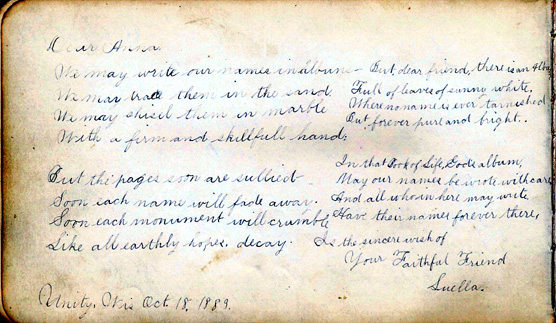 Dear Anna,
We may write our names in album-
We may trace them in the sand
We may chisel them in marble
With a firm and skillfull hand;
But the pages soon are sullied
Soon each name will fade away.
Soon each monument will crumble
Like all earthly hopes, decay.
But, dear friend, there is an Album
Full of leaves of sunny white,
Where no name is ever tarnished
But forever pure and bright.
In that Book of Life, God's album,
May our names be wrote with care
And all who in here may write
Have their names forever there,
Is the sincere wish of
Your Faithful Friend
Luella.
Unity, Wis Oct 18, 1889.